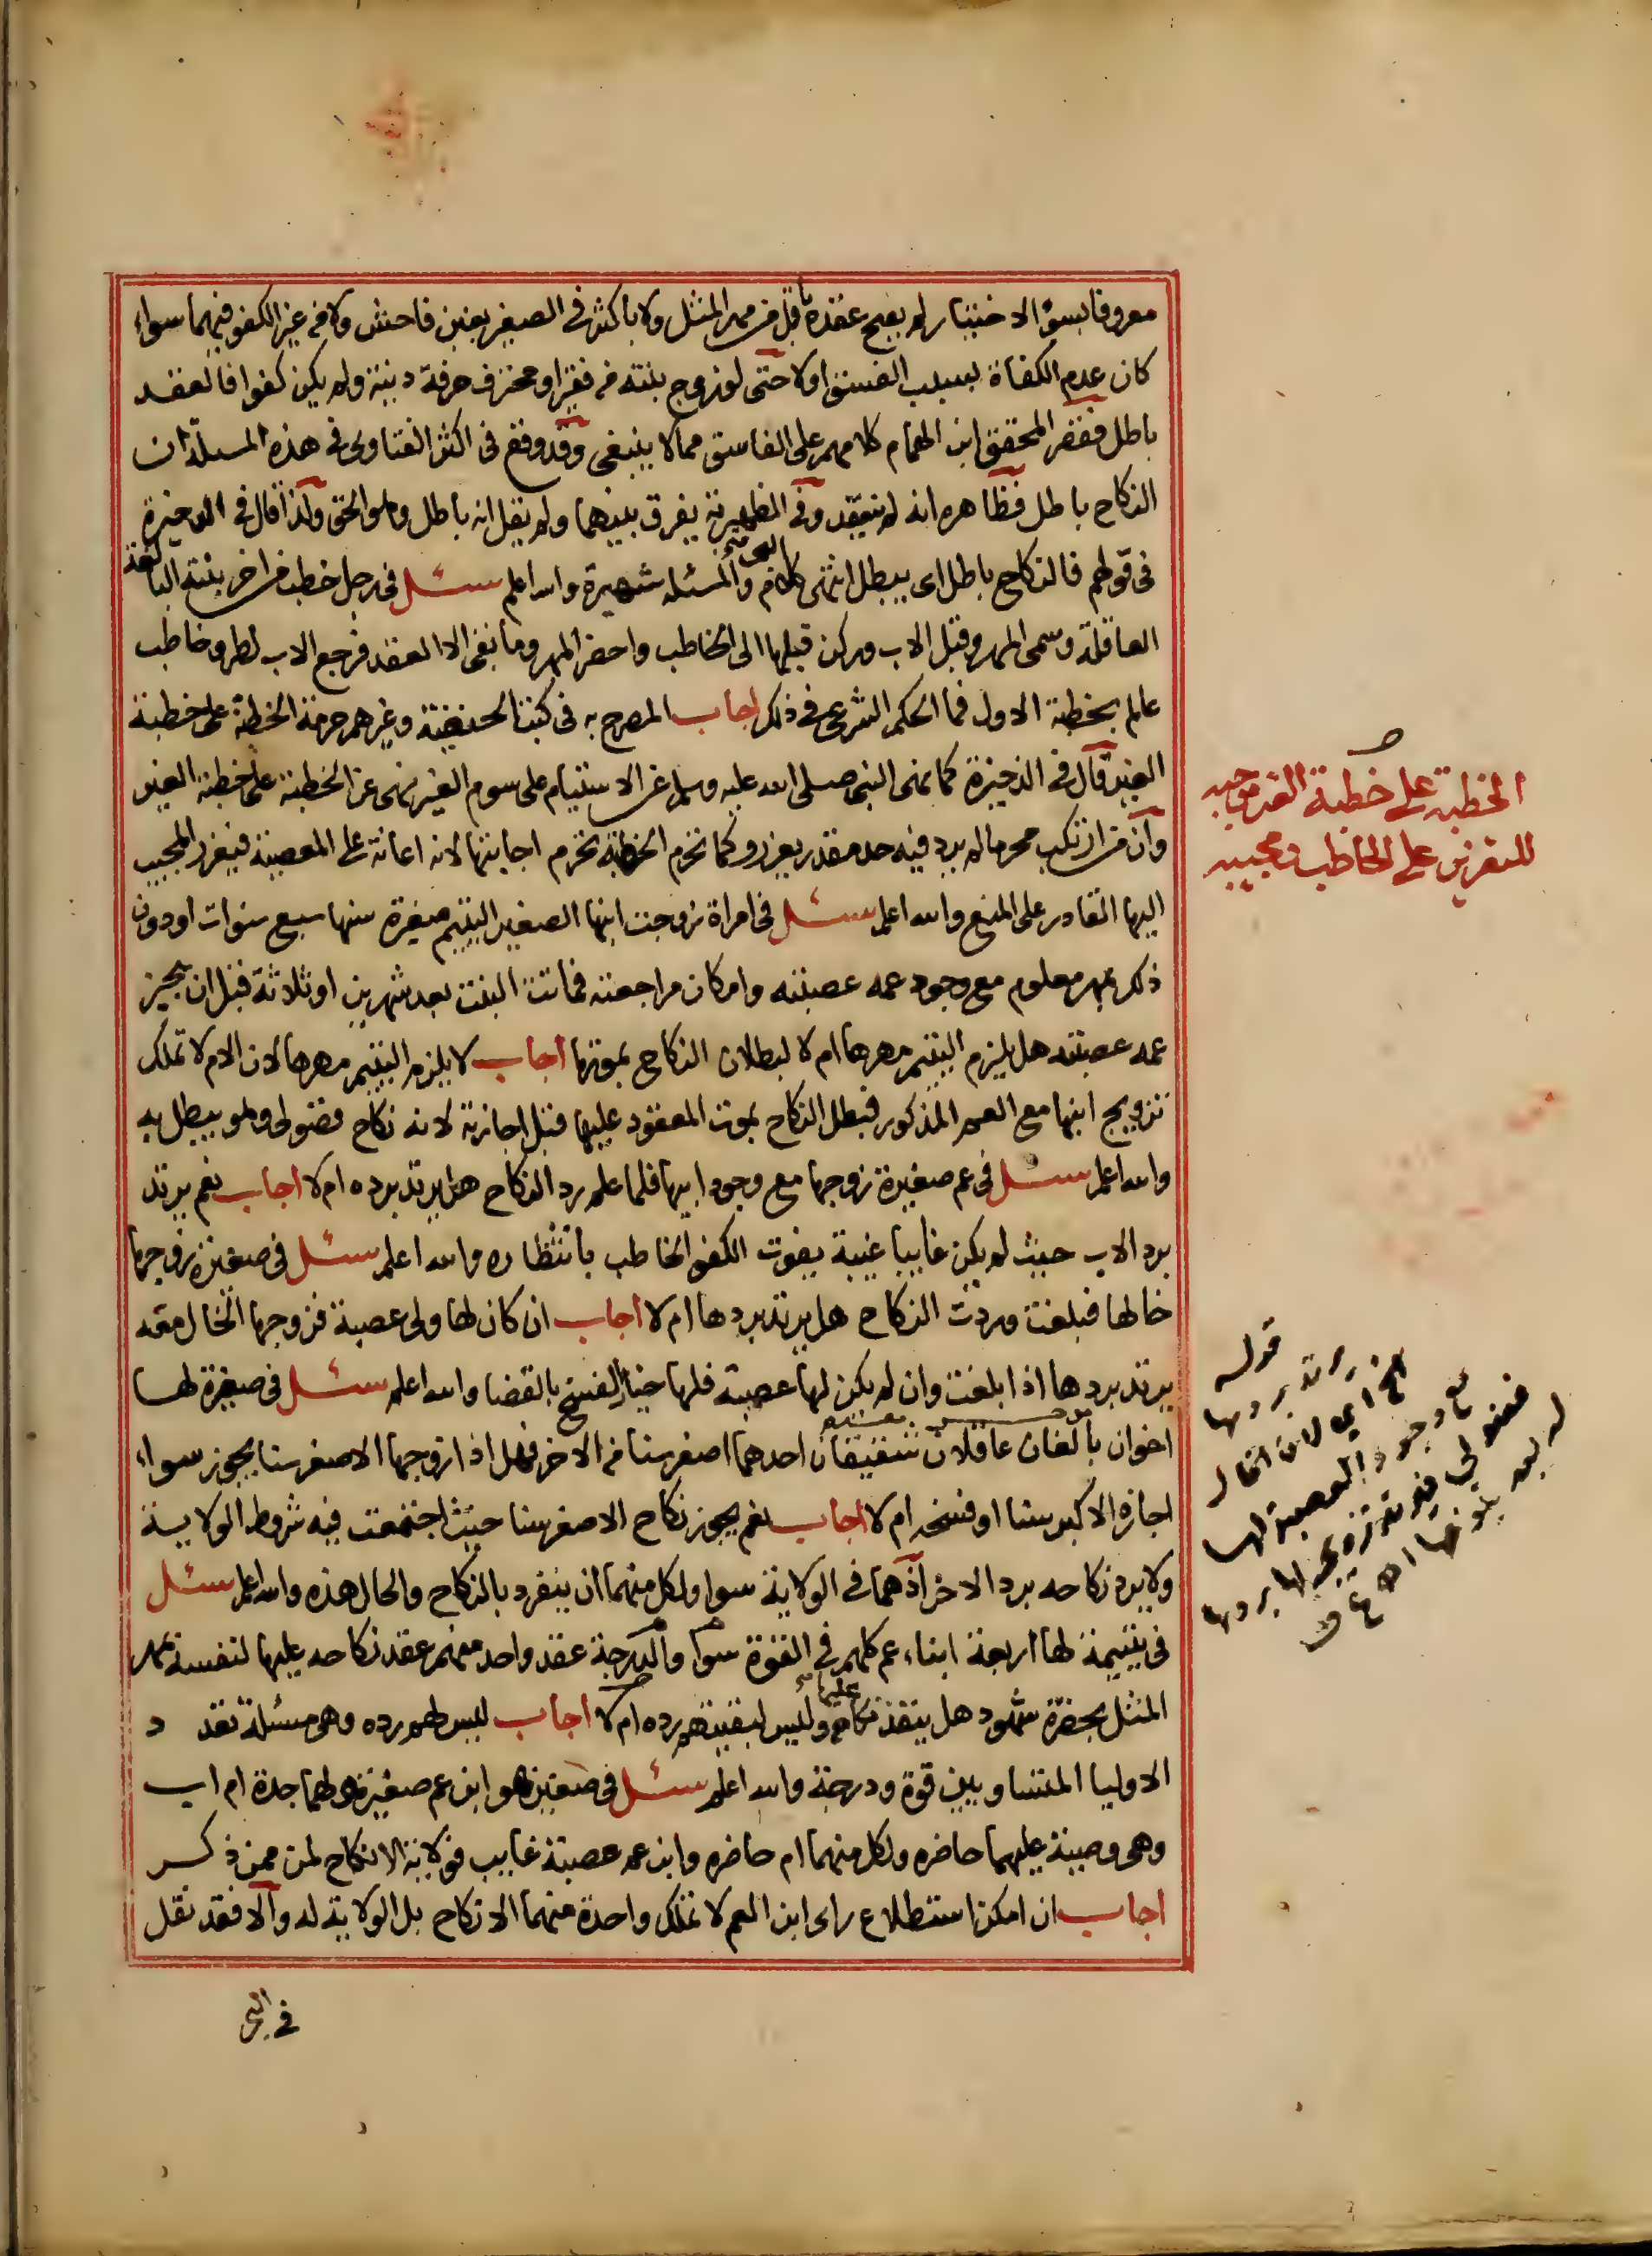 معروفا بسوء الاختيار لم يصح عقده باقل من مهر المثل ولا باكثر في الصغير بغبن فاحش ولا من غير الكفو فيهما سواء
كان عدم الكفاة بسبب الفسق او لا حتى لو زوج بنته من فقير او محترف حرفة دنية ولم يكن كفوا فالعقد
باطل فقصر المحقق ابن الهمام كلامهم على الفاسق مما لا ينبغي وقد وقع في اكثر الفتاوى في هذه المسلة ان
النكاح باطل فظاهره انه لم ينعقد وفي الظهيرية يفرق بينهما ولم يقل انه باطل وهو الحق ولذا قال في الذخيرة
في قولهم فالنكاح باطل اى يبطل انتهى كلام البحر والمسئلة شهيرة والله اعلم سئل في رجل خطب من اخر بنته البالغة
العاقلة وسمى المهر وقبل الاب وركن قبلها الى الخاطب واحضر المهر وما بقى الا العقد فرجع الاب لطرو خاطب
عالم بخطبة الاول فما الحكم الشرعي في ذلك اجاب المصرح به في كتبنا الحنفية وغيرهم حرمة الخطبة على خطبة
الغير قال في الذخيرة كما نهى النبى صلى الله عليه وسلم عن الاستيام على سوم الغير نهى عن الخطبة على خطبة الغير
وان من ارتكب محرما لم يرد فيه حد مقدر يعزر وكما تحرم الخطبة تحرم اجابتها لانه اعانة على المعصية فيعزر المجيب
اليها القادر على المنع والله اعلم سئل في امراة زوجت ابنها الصغير اليتيم صغيرة سنها سبع سنوات او دون
ذلك بمهر معلوم مع وجود عمه عصبته وامكان مراجعته فماتت البنت بعد شهرين او ثلاثة قبل ان يجيز
عمه عصبته هل يلزم اليتيم مهرها ام لا لبطلان النكاح بموتها اجاب لا يلزم اليتيم مهرها لان الام لا تملك
تزويج ابنها مع العم المذكور فبطل النكاح بموت المعقود عليها قبل اجازته لانه نكاح فضولى وهو يبطل به
والله اعلم سئل في عم صغيرة زوجها مع وجود ابيها فلما علم رد النكاح هل يرتد برده ام لا اجاب نعم يرتد
برد الاب حيث لم يكن غايبا غيبة يفوت الكفو الخاطب بانتظاره والله اعلم سئل في صغيرة زوجها
خالها فبلغت وردت النكاح هل يرتد بردها ام لا اجاب ان كان لها ولى عصبة فزوجها الخال معه
يرتد بردها اذا بلغت وان لم يكن لها عصبة فلها خيار الفسخ بالقضا والله اعلم سئل في صغيرة لها
اخوان بالغان عاقلان شقيقان احدهما اصغر سنا من الاخر فهل اذا زوجها الاصغر سنا يجوز سواء
اجازه الاكبر سنا او فسخه ام لا اجاب نعم يجوز نكاح الاصغر سنا حيث اجتمعت فيه شروط الولاية
ولا يرد نكاحه برد الاخر اذ هما في الولاية سوا ولكل منهما ان ينفرد بالنكاح والحال هذه والله اعلم سئل
في يتيمة لها اربعة ابناء عم كلهم في القوة سوا والدرجة عقد واحد منهم عقد نكاحه عليها لنفسه بمهر
المثل بحضرة شهود هل ينفذ نكاحه عليها وليس لبقيتهم رده ام لا اجاب ليس لهم رده وهى مسئلة تعدد
الاوليا المتساويين قوة ودرجة والله اعلم سئل في صغير هو ابن عم صغيرة لهما جدة ام اب
وهى وصية عليهما حاضره ولكل منهما ام حاضره وابن عم عصبة غايب فولاية الانكاح لمن ممن ذكر
اجاب ان امكن استطلاع راى ابن العم لا تملك واحدة منهما الانكاح بل الولاية له والا فقد نقل
في البحر
الخطبة على خطبة الغير موجبه
للتعزير على الخاطب ومجيبه
قوله
يرتد بردها
الخ اي لان الخال
مع وجود العصبة لها
فضولي